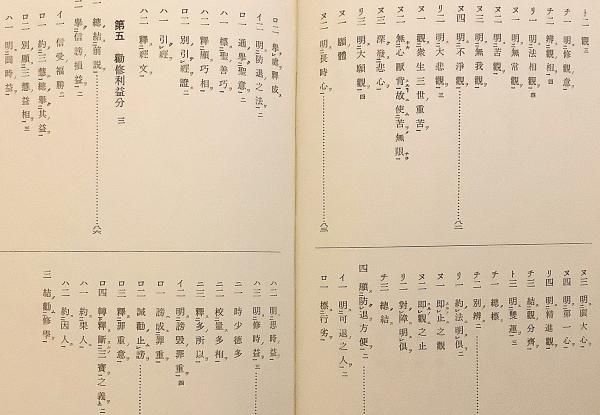 ト二 觀 三
チ一 明修觀意 二
チ二 辨觀相 四
リ一 明法相觀 四
ヌ一 明無常觀
ヌ二 明苦觀
ヌ三 明無我觀
ヌ四 明不淨觀
リ二 明大悲觀 二
ヌ一 觀衆生三世重苦
ヌ二 無心厭背故使苦無限
ヌ三 深發悲心
リ三 明大願觀 四
ヌ一 願體
ヌ二 明長時心
ヌ三 明廣大心
ヌ四 明第一心
リ四 明精進觀
チ三 結觀分齊
ト三 明雙運 三
チ一 總標
チ二 別辨 二
リ一 約法明俱 二
ヌ一 即止之觀
ヌ二 即觀之止
リ二 對障明俱 二
チ三 總結
四 顯防退方便 二
イ一 明可退之人 二
ロ一 標行劣
ロ二 擧處釋成
イ二 明防退之法 二
ロ一 通擧聖意 二
ハ一 標聖善巧
ハ二 釋顯巧相
ロ二 別引經證 二
ハ一 引經
ハ二 釋經文
第五 勸修利益分 三
一 總結前說
二 擧信謗損益 二
イ一 信受福勝 二
ロ一 約三慧總擧其益
ロ二 別顯三慧益相 三
ハ一 明聞時益
ハ二 明思時益
ハ三 明修時益 三
ニ一 時少德多
ニ二 校量多相
ニ三 釋多所以
イ二 明謗毀罪重 四
ロ一 謗成罪重
ロ二 誡勸止謗
ロ三 釋罪重意
ロ四 轉釋斷三寶之義 二
ハ一 約果人
ハ二 約因人
三 結勸修學